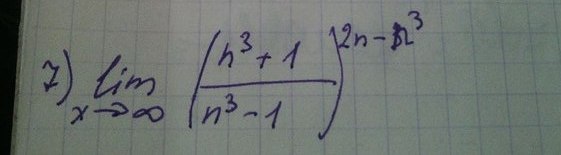 7) lim x→∞ ((n³ + 1)/(n³ − 1))^(2n − n³)